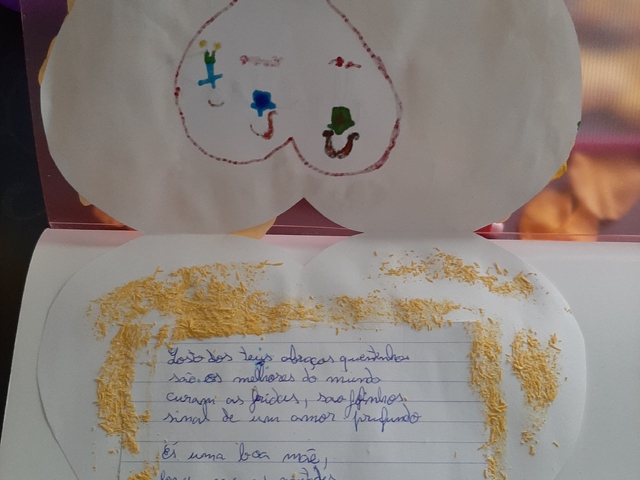 Gosto dos teus abraços quentinhos
são os melhores do mundo
curam as feridas, sao fofinhos
sinal de um amor profundo
És uma boa mãe,